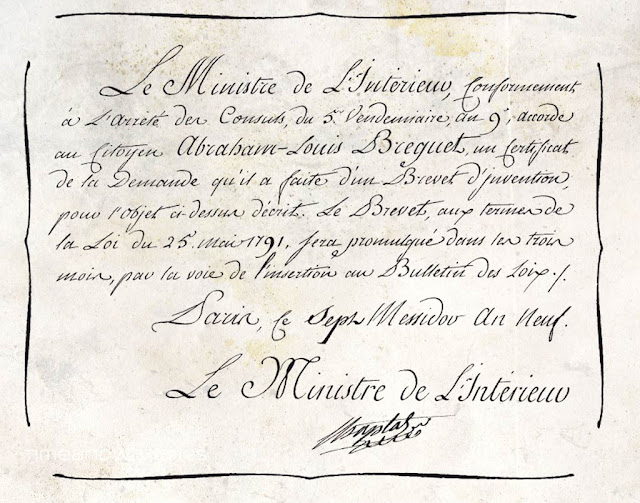 Le Ministre de L'Intérieur, Conformément
à L'Arrêté des Consuls, du 5.e Vendemiaire an 9.e, accorde
au Citoyen Abraham-Louis Breguet, un Certificat
de la Demande qu'il a faite d'un Brevet d'invention,
pour l'objet ci-dessus décrit. Le Brevet, aux termes de
la Loi du 25. mai 1791. sera promulgué dans les trois
mois, par la voie de l'insertion au Bulletin des Loix./.
Paris, Ce Sept Messidor An Neuf.
Le Ministre de L'Intérieur
Chaptal